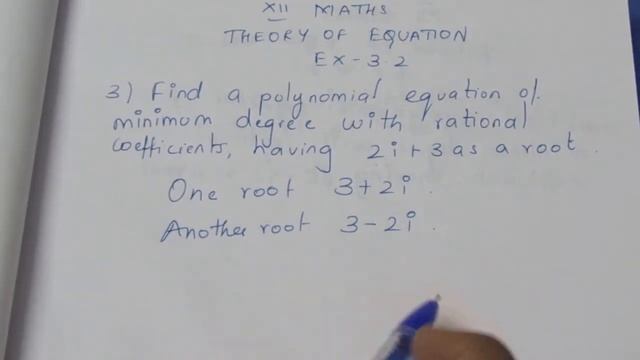 XII MATHS
THEORY OF EQUATION
EX-3.2
3) Find a polynomial equation of
minimum degree with rational
coefficients, having 2i+3 as a root.
One root 3+2i.
Another root 3-2i.